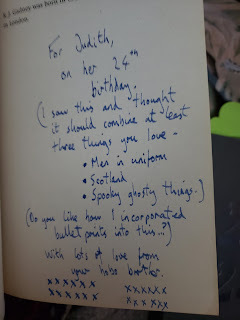 in London.
For Judith,
on her 24th
birthday.
(I saw this and thought
it should combine at least
three things you love -
• Men in uniform
• Scotland
• Spooky ghosty things.)
(Do you like how I incorporated
bullet points into this...?)
With lots of love from
your hobo brother.
x x x x x x x x x x x x
x x x x x x x x x x x x